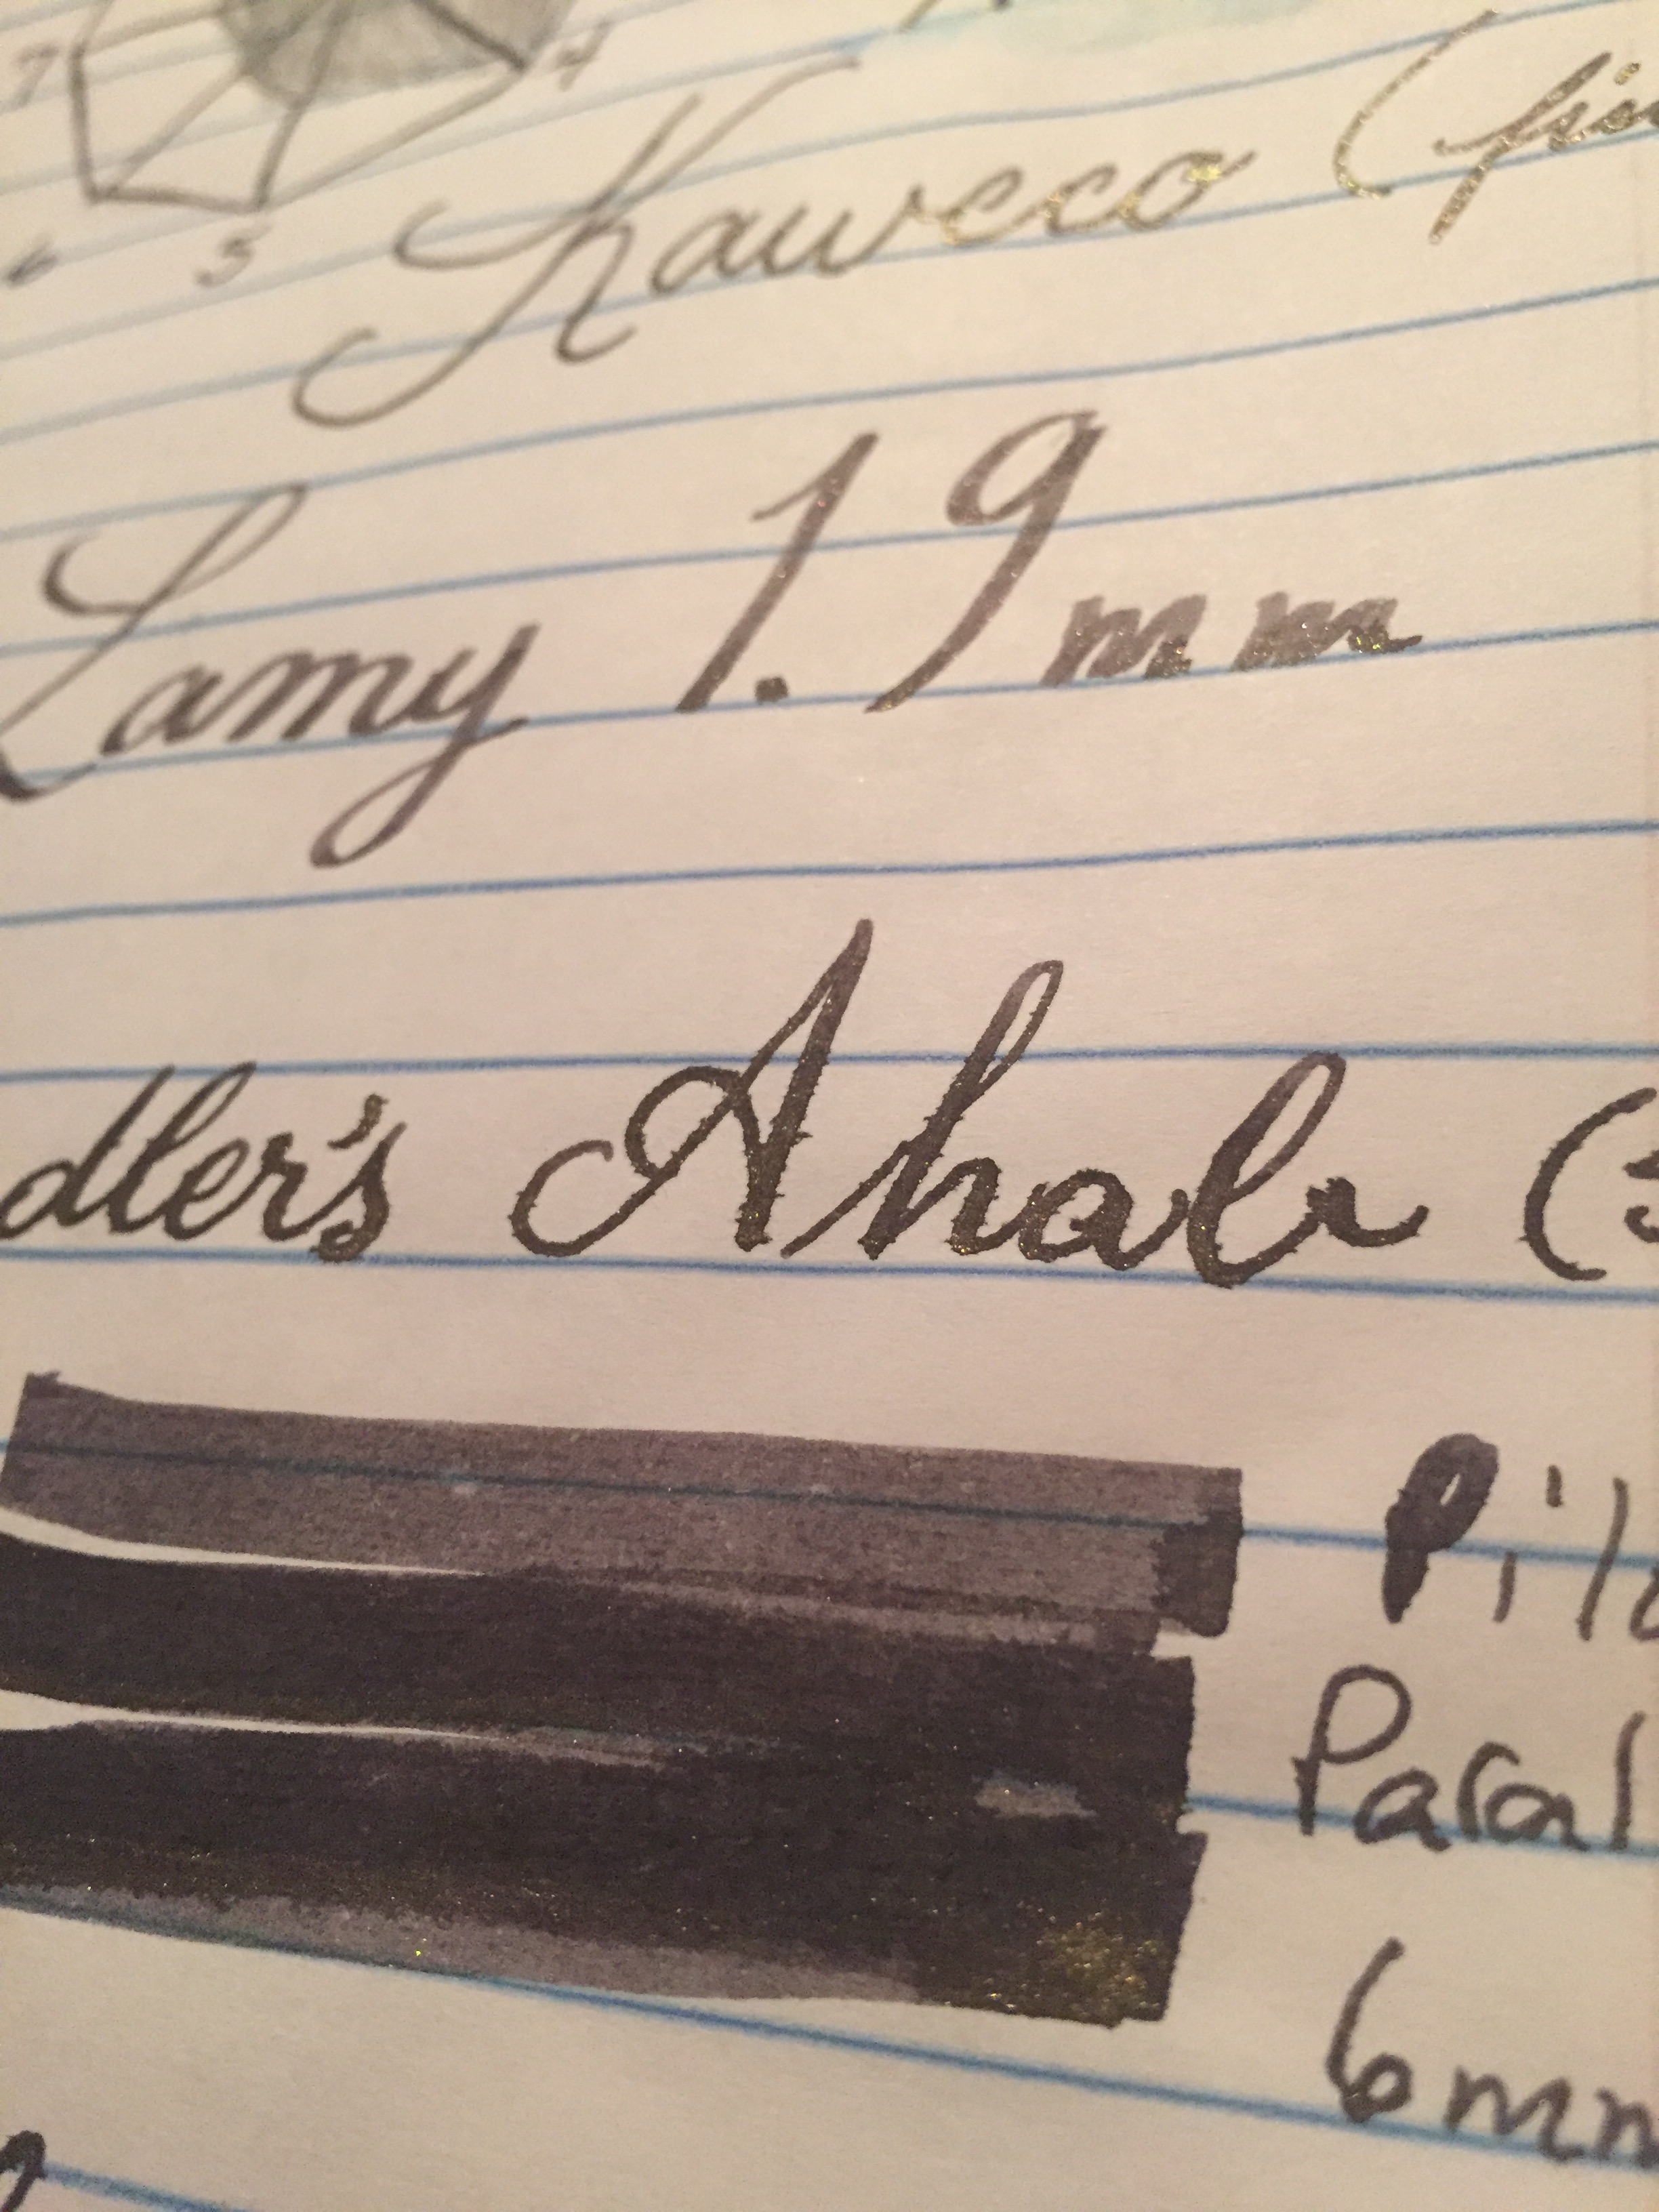 7 4
6 5
Kaweco (fin
Lamy 1.9mm
dler's Ahab (
Pilo
Paral
6mm